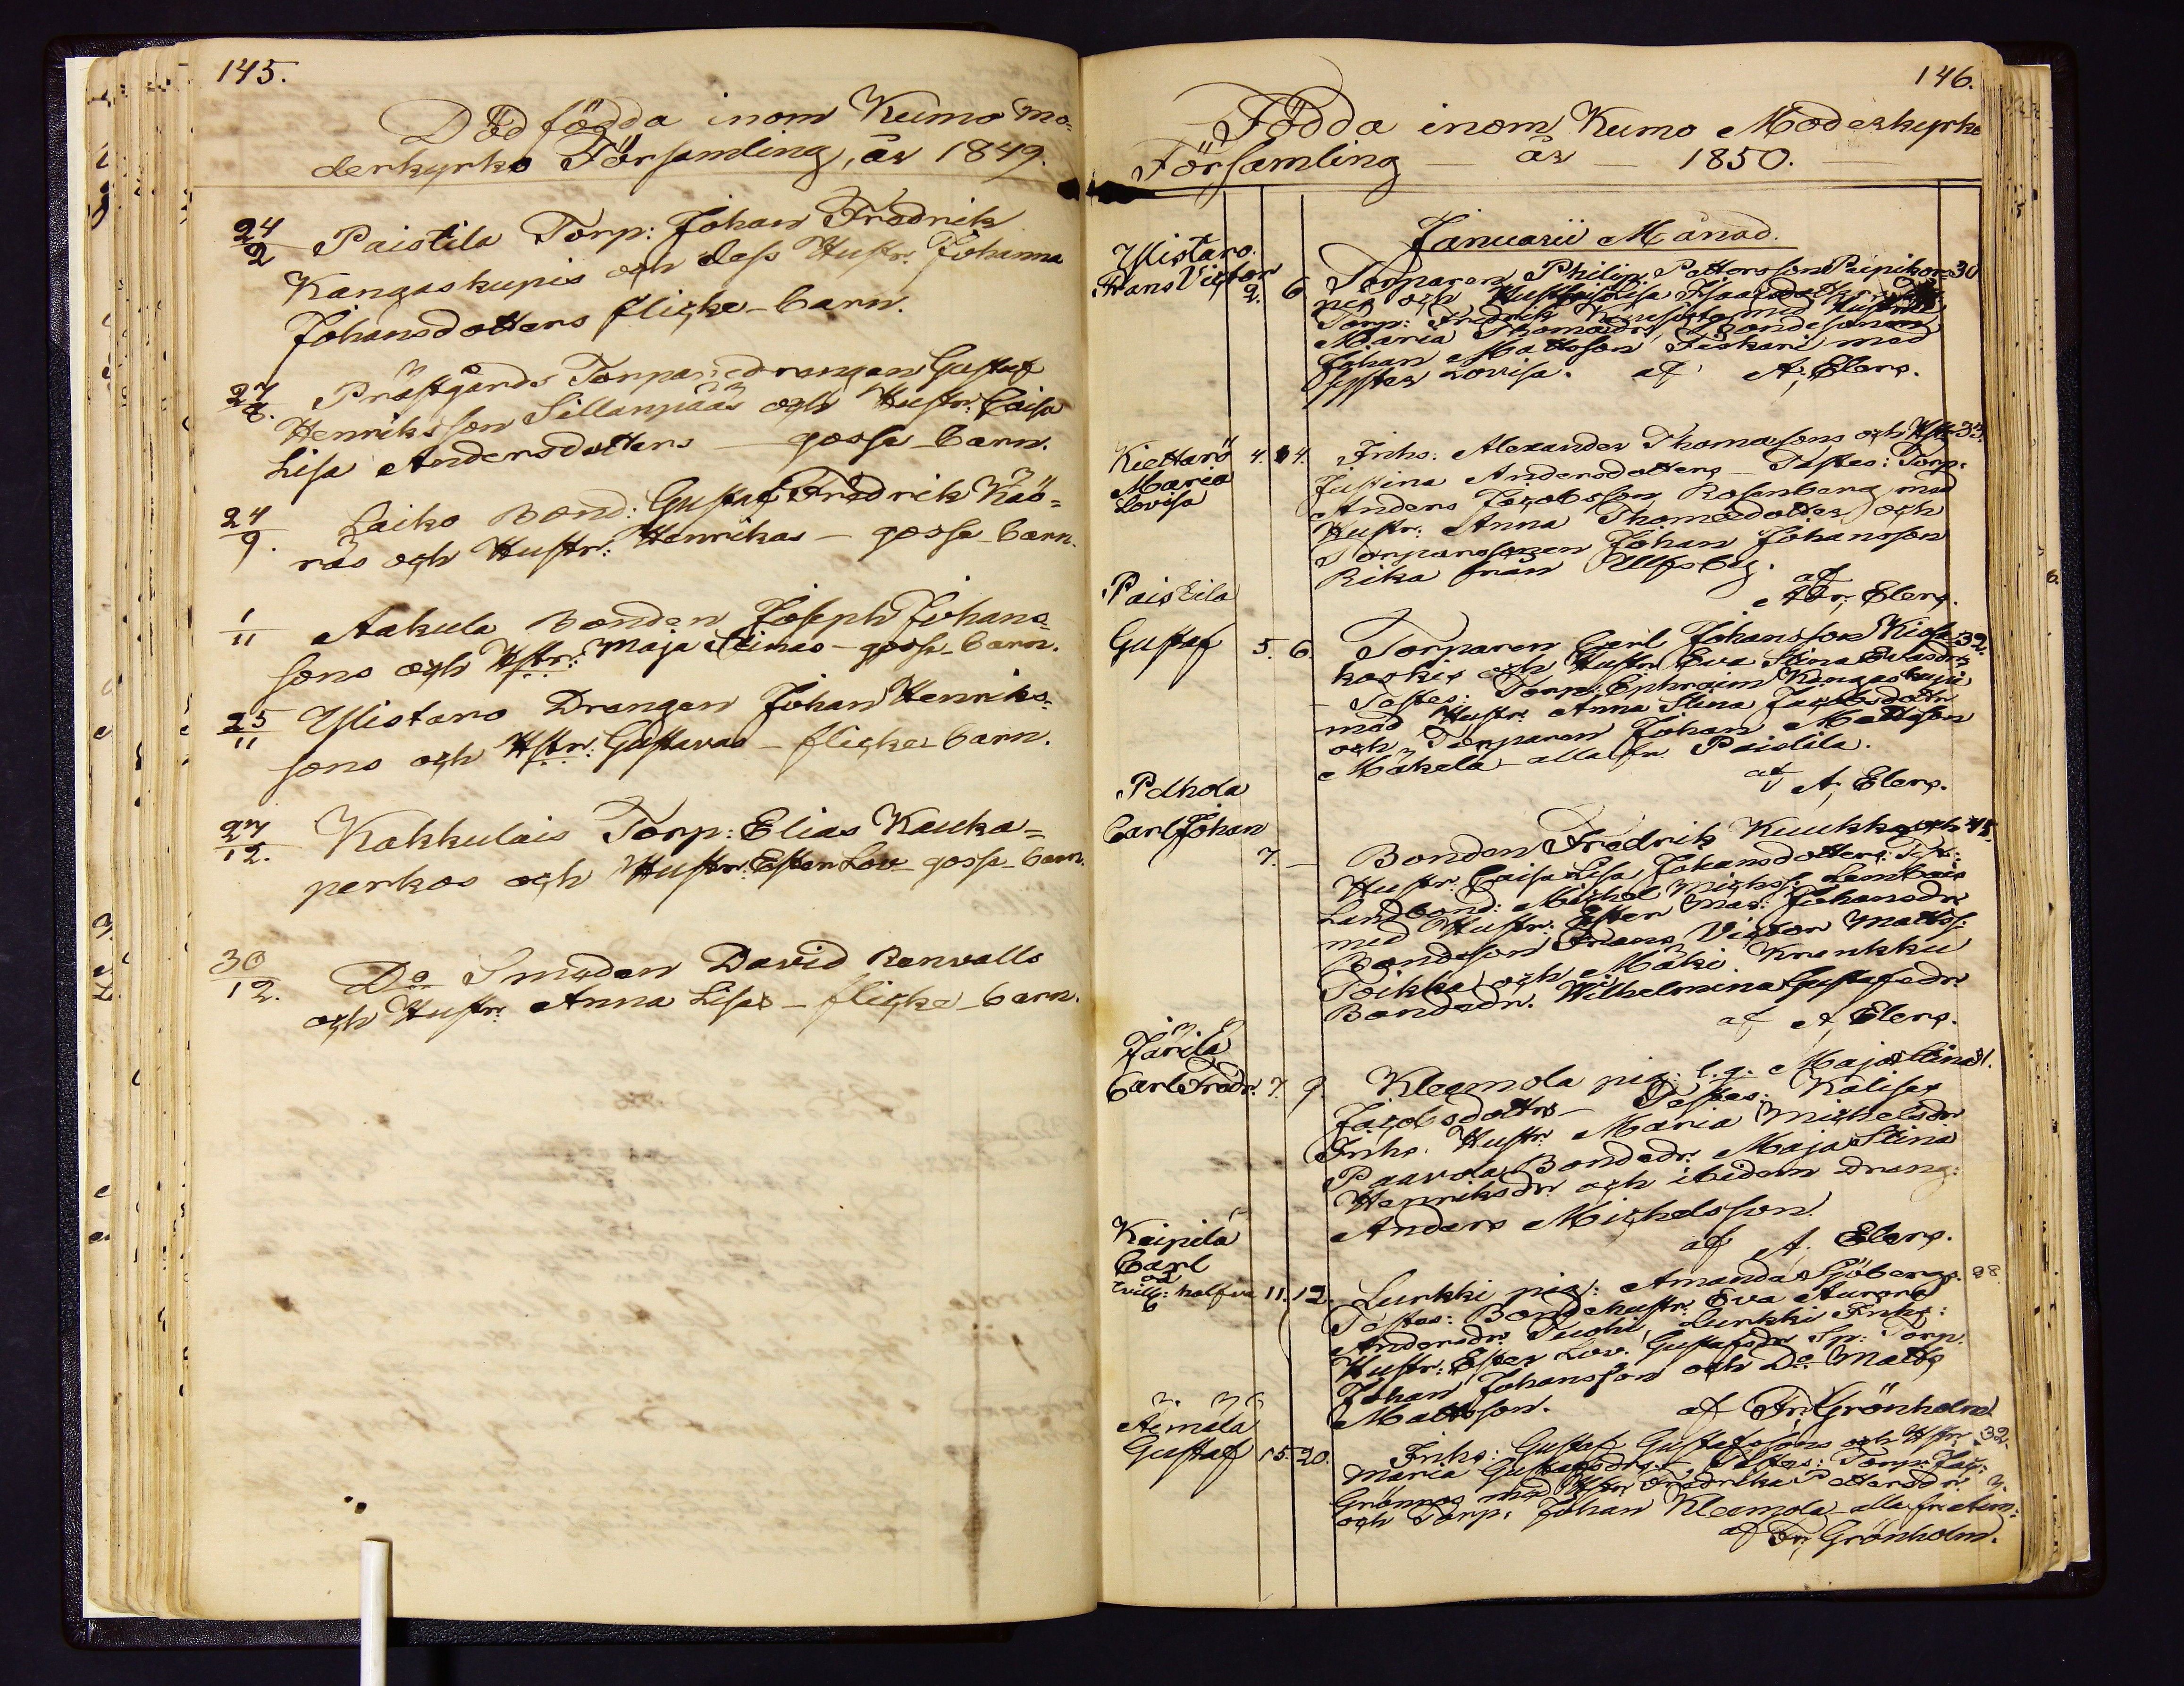 145.
Död födda inom Kumo Mo=
derkyrko Församling, år 1849.
24/2 Paistila Torp: Johan Fredrik
Kangaskupis och dess Hustr: Johanna
Johansdotters flicke-barn.
27/8. Prästgårds Torparedrängen Gustaf
Henriksson Sillanpääs och Hustr: Caisa
Lisa Andersdotters — gosse-barn.
24/9. Laiko Bond: Gustaf Fredrik Kaö=
räs och Hustr: Henrikas — gosse-barn.
1/11 Aakula Bonden Joseph Johans=
sons och Hstr: Maja Stinas — gosse-barn.
25/11 Ylistaro Drängen Johan Henriks=
sons och Hstr: Gustavas — flicke-barn.
27/12. Kakkulais Torp: Elias Kauka=
perkos och Hustr: Ester Lov — gosse-barn.
30/12. Do Smeden David Renvalls
och Hustr: Anna Lisas — flicke-barn.
146.
Födda inom Kumo Moderkyrko
Församling — år — 1850.
Januarii Månad.
Ylistaro.
Frans Victor 2. 6 Torparen Philip Pettersson 30
och Hustr: Lisa Isaacsdotter
Torp: Fredrik med Hustru
Maria Thomædr: Bondesonen
Johan Mattsson Fiskari med
Syster Lovisa. af A. Elers.
Kiettarö 4. 4. Inhs: Alexander Thomasons och Hstr: 33.
Maria Justina Andersdotters — Testes: Torp:
Lovisa Anders Jacobsson Rosenberg med
Hustr: Anna Thomædotter och
Torparesonen Johan Johansson
Rika från Ulfsby.
af A. Elers.
Paistila
Gustaf 5. 6. Torparen Carl Johansson Kiosa= 32.
koskis och Hustr: Eva Stina Evasdrs
— Testes: Torp: Ephraim Kangaskupi
med Hustr: Anna Stina Jacobsdottr
och Torparen Johan Mattsson
Mäkelä — alla fr. Paistila.
af A. Elers.
Pelhola
Carl Johan 7. — Bonden Fredrik Kuukka och 45.
Hustr: Caisa Lisa Johansdotters Test:
Landbond: Michel Michelss: Lambois
med Hustr: Ester Mar: Johansdr
Bondeson Frans Victor Mattss:
Toikka och Mäki Krankku
Bondedr. Wilhelmina Gustafsdr.
af A. Elers.
Järilä
Carl Fredr. 7. 9 Kleemola pig: l. q. Maja Stina 31.
Jacobsdotters — Testes: Kalisax
Inhs. Hustr: Maria Michelsdr
Paavola Bondedr. Maja Stina
Henriksdr och ibidem Dräng:
Anders Michelsson.
af A. Elers.
Keipilä
Carl
Vilh: 11. 12. Lurkki pig: Amanda Sjöbergs. 28
Testes: Bond Hustr: Eva Aurora
Andersdr Tuohi, Lurkki Inhs:
Hustr: Ester Lov: Gustafsdr Sp: Torp.
Johan Johansson och Do Matts
Mattsson. af Fr: Grönholm
Äimälä
Gustaf 15. 20. Inhs: Gustaf Gustafssons och Hstr: 32.
Maria Gustafsdrs — Testes: Torp: Jac:
Grönroos med Hstr: Fredrika Pettersdr.
och Torp: Johan Kleemola — alla fr. Äim:
af Fr: Grönholm.